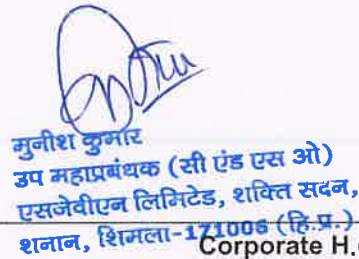 मुनीश कुमार
उप महाप्रबंधक (सी एंड एस ओ)
एसजेवीएन लिमिटेड, शक्ति सदन,
शनान, शिमला-171006 (हि.प्र.)
Corporate H.